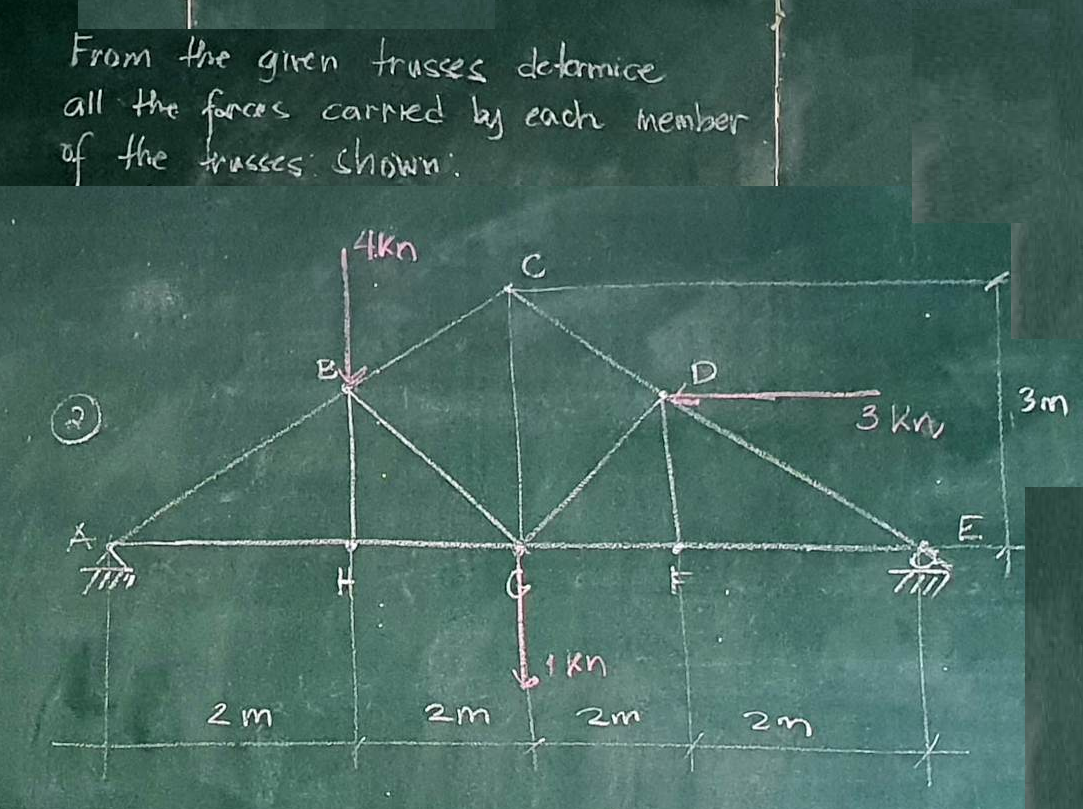 From the given trusses determice
all the forces carried by each member
of the trusses: shown:
4kn
C
B
D
3 kn
3m
2
A
E
H
G
F
1 kn
2 m
2m
2m
2m